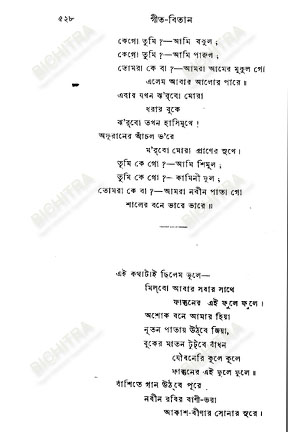 ৫২৮ গীত-বিতান
কেগো তুমি ?—আমি বকুল ;
কেগো তুমি ?—আমি পারুল ;
তোমরা কে বা ?—আমরা আমের মুকুল গো
এলেম আবার আলোর পারে ॥
এবার যখন ঝ'র্‌বো মোরা
ধরার বুকে
ঝ'র্‌বো তখন হাসিমুখে !
অফুরানের আঁচল ভ'রে
ম'র্‌বো মোরা প্রাণের সুখে ।
তুমি কে গো ?—আমি শিমুল ;
তুমি কে গো ?—কামিনী ফুল ;
তোমরা কে বা ?—আমরা নবীন পাতা গো
শালের বনে ভারে ভারে ॥
এই কথাটাই ছিলেম ভুলে—
মিল্‌বো আবার সবার সাথে
ফাল্গুনের এই ফুলে ফুলে ।
অশোক বনে আমার হিয়া
নূতন পাতায় উঠ্‌বে জিয়া,
বুকের মাতন টুট্‌বে বাঁধন
যৌবনেরি কূলে কূলে
ফাল্গুনের এই ফুলে ফুলে ॥
বাঁশিতে গান উঠ্‌বে পূরে
নবীন রবির বাণী-ভরা
আকাশ-বীণার সোনার সুরে ।
BICHITRA